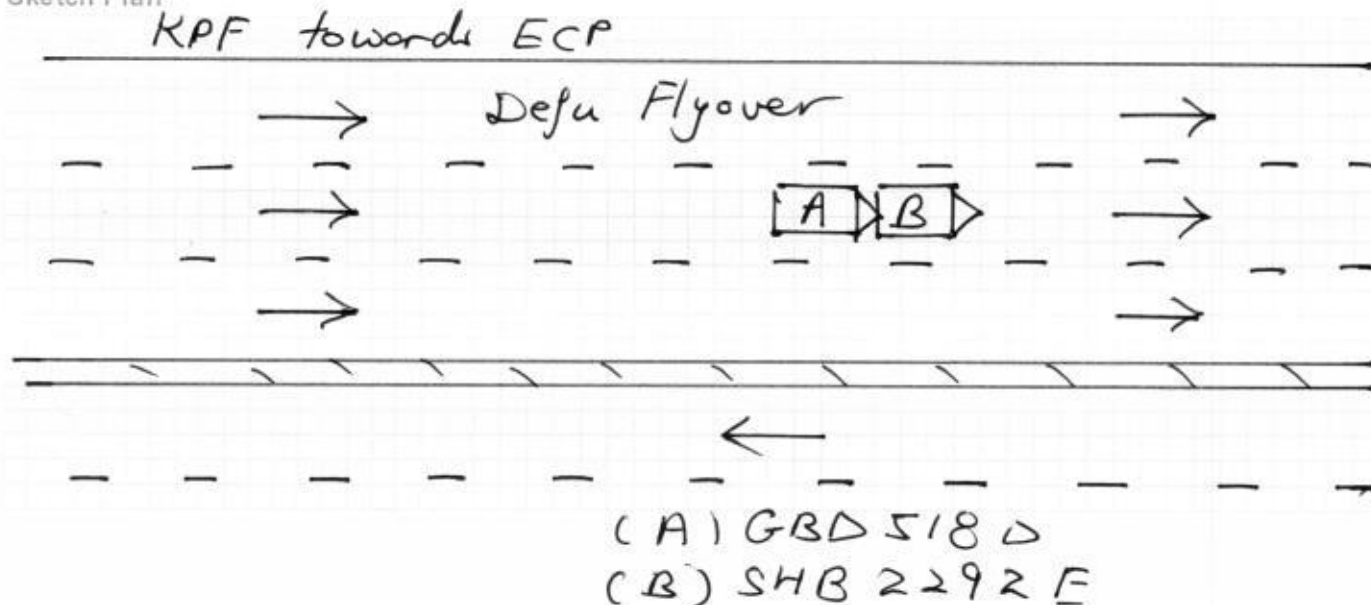 Sketch Plan
KPF towards ECP
Defu Flyover
A B
(A) GBD 518 D
(B) SHB 2292 E